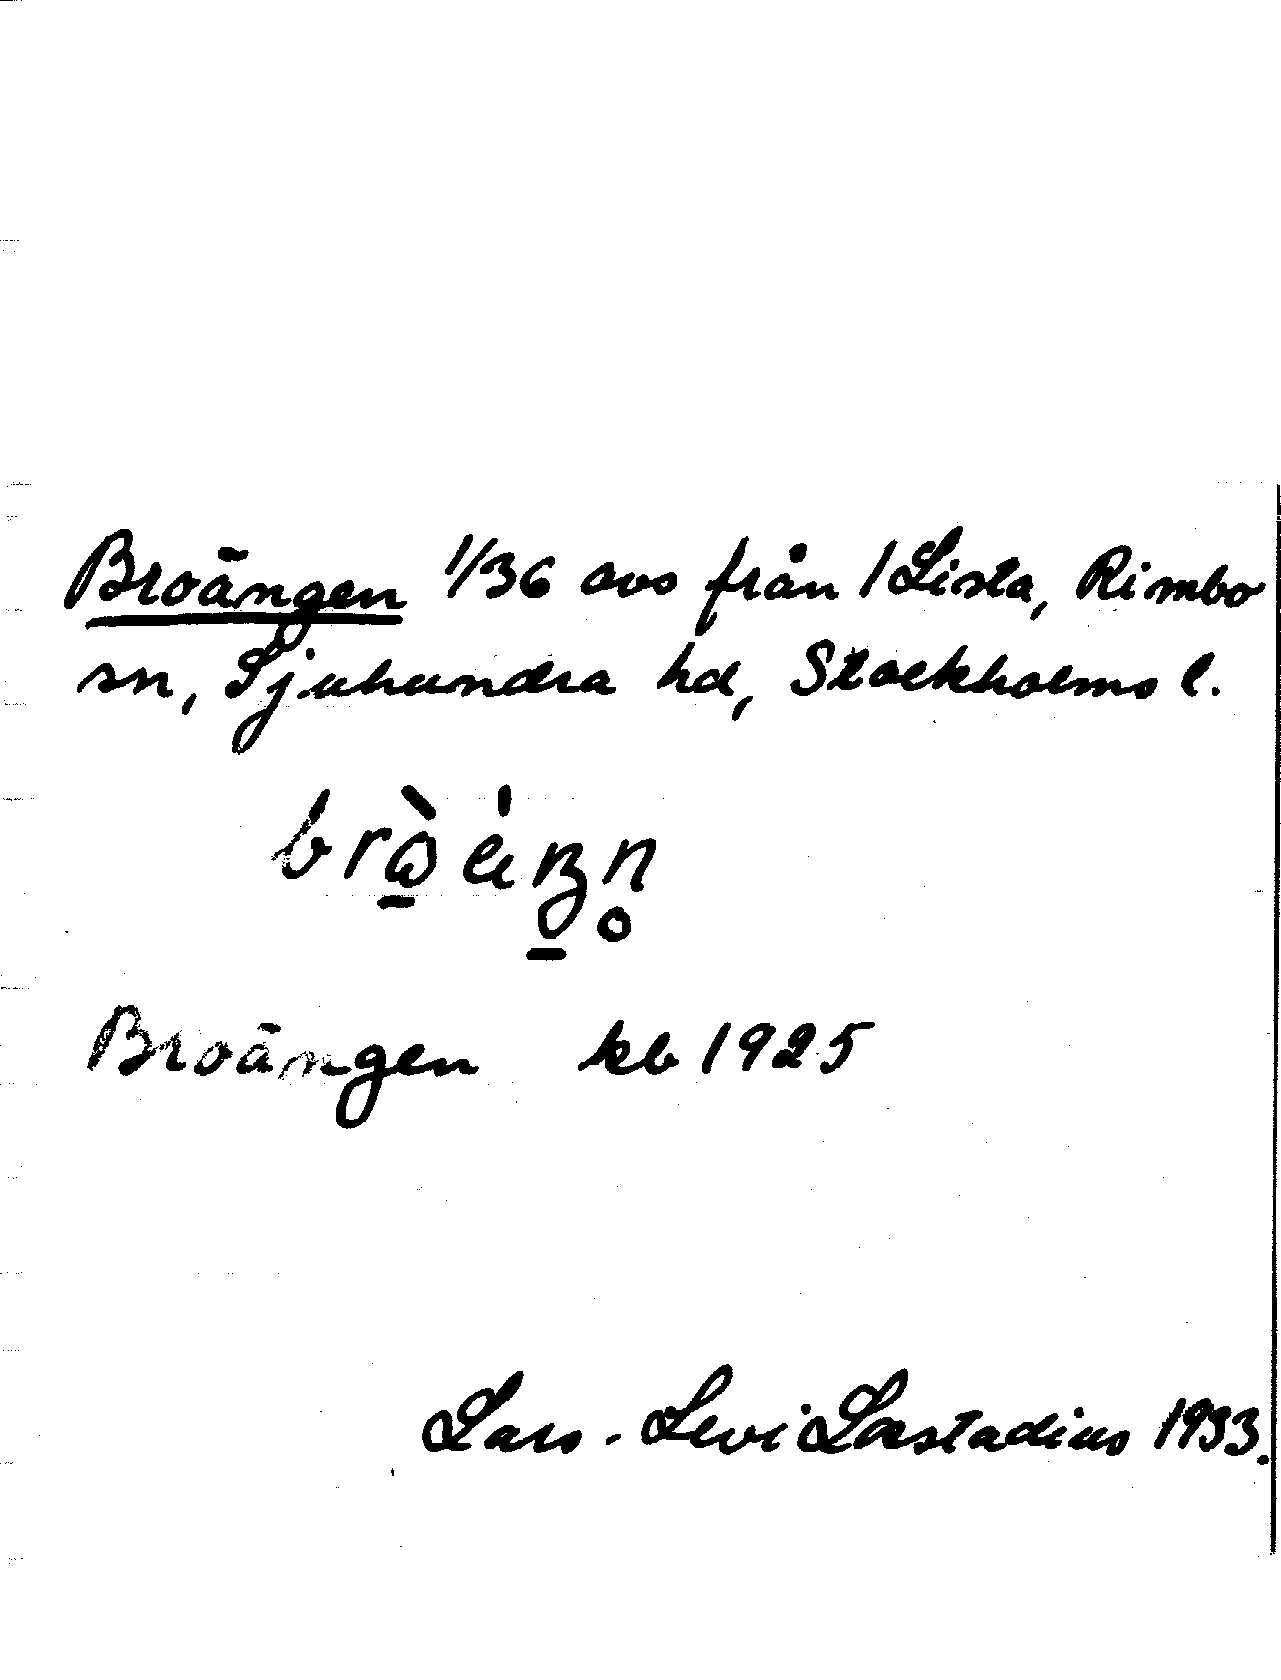 Broängen 1/36 avs från 1 Lista, Rimbo
sn, Sjuhundra hd, Stockholms l.
Broängen kb 1925
Lars-Levi Læstadius 1933.